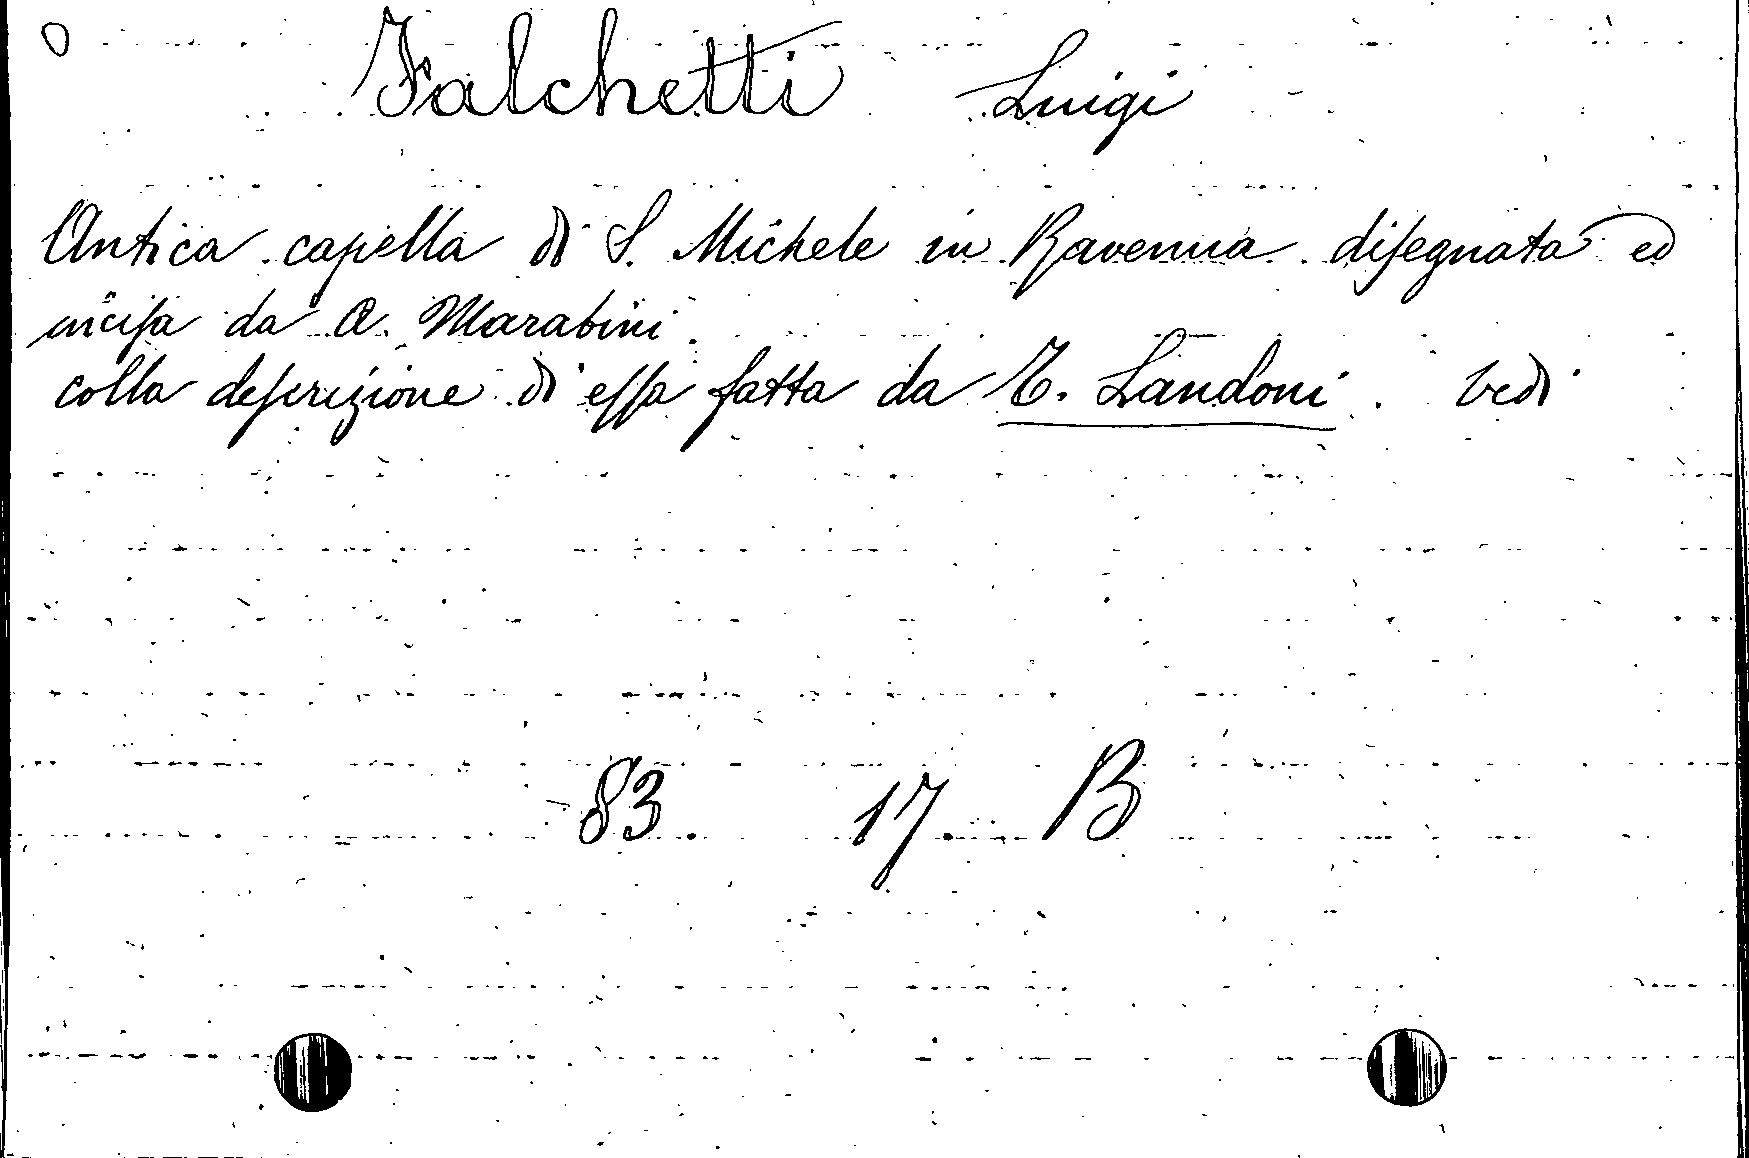 Falchetti Luigi
Antica capella di S. Michele in Ravenna diſegnata ed
inciſa da A. Marabini
colla deſcrizione di eſſa fatta da T. Landoni. Vedi
83 17 B